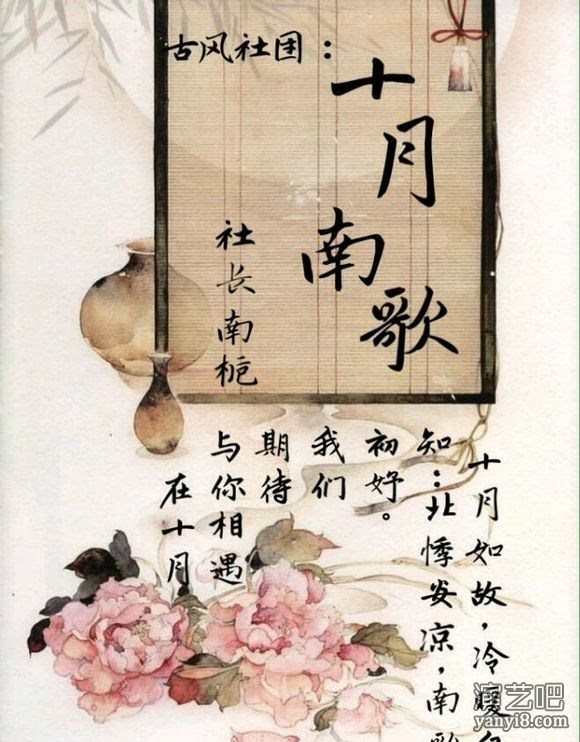 古风社团：
十月南歌
社长南栀
十月如故，冷暖自
知：北悸安凉，南歌
初妤。
我们
期待
与你相遇
在十月
演艺吧
yanyi8.com